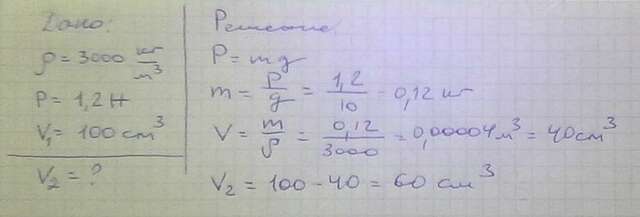 Дано:
ρ = 3000 кг/м³
P = 1,2 Н
V₁ = 100 см³
V₂ = ?
Решение
P = mg
m = P/g = 1,2/10 = 0,12 кг
V = m/ρ = 0,12/3000 = 0,00004 м³ = 40 см³
V₂ = 100 - 40 = 60 см³